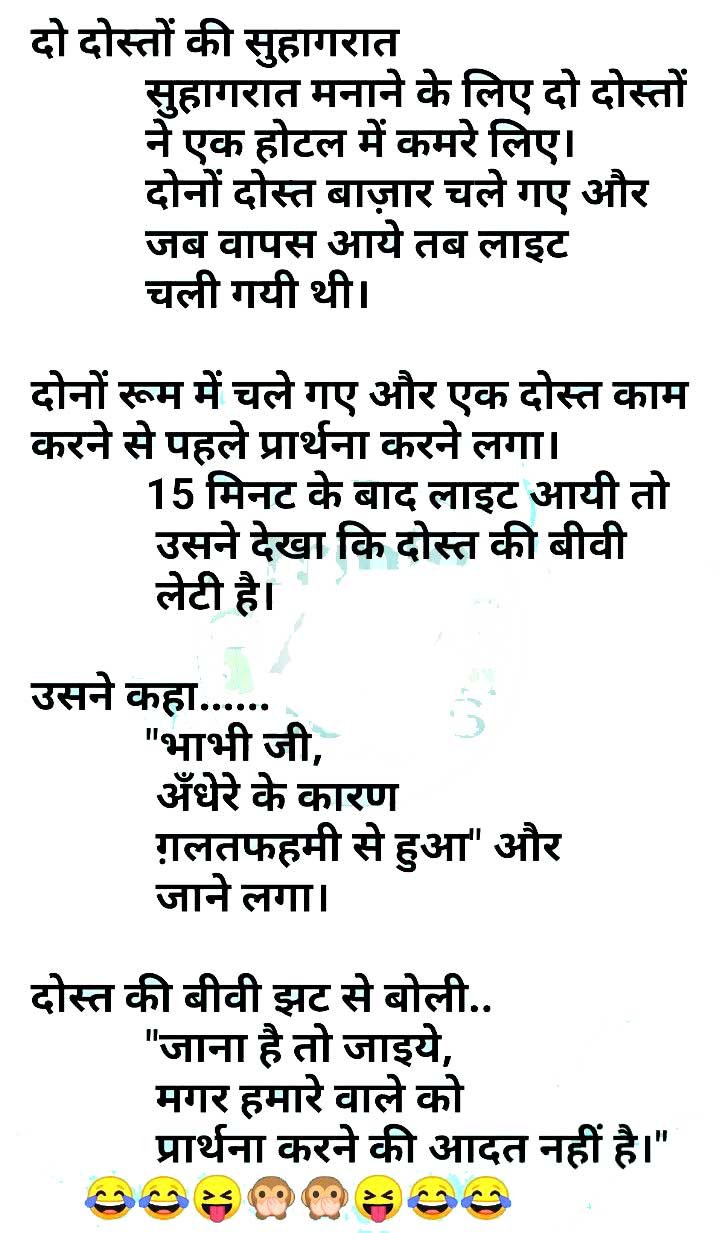 दो दोस्तों की सुहागरात
सुहागरात मनाने के लिए दो दोस्तों
ने एक होटल में कमरे लिए।
दोनों दोस्त बाज़ार चले गए और
जब वापस आये तब लाइट
चली गयी थी।
दोनों रूम में चले गए और एक दोस्त काम
करने से पहले प्रार्थना करने लगा।
15 मिनट के बाद लाइट आयी तो
उसने देखा कि दोस्त की बीवी
लेटी है।
उसने कहा......
"भाभी जी,
अँधेरे के कारण
ग़लतफहमी से हुआ" और
जाने लगा।
दोस्त की बीवी झट से बोली..
"जाना है तो जाइये,
मगर हमारे वाले को
प्रार्थना करने की आदत नहीं है।"
😂😂😝🙊🙊😝😂😂